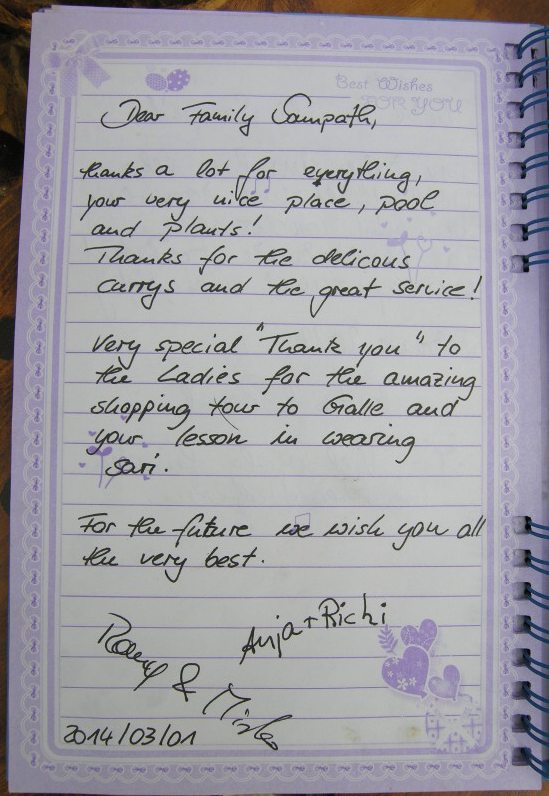 Best Wishes
FOR YOU
Dear Family Sampath,
thanks a lot for everything,
your very nice place, pool
and plants!
Thanks for the delicous
currys and the great service!
Very special "Thank you" to
the Ladies for the amazing
shopping tour to Galle and
your lesson in wearing
sari.
For the future we wish you all
the very best.
Anja + Richi
&
2014/03/01